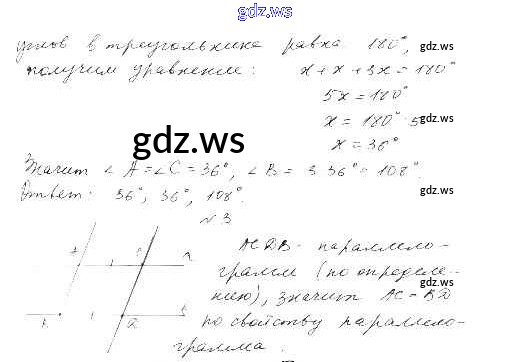 gdz.ws
углов в треугольнике равна 180°, gdz.ws
получим уравнение: x + x + 3x = 180°
5x = 180°
x = 180° : 5 gdz.ws
x = 36°
gdz.ws
Значит ∠A = ∠C = 36°, ∠B = 3·36° = 108°.
Ответ: 36°, 36°, 108°. gdz.ws
№3
ACDB - параллело-
грамм (по определе- gdz.ws
нию), значит AC = BD
по свойству параллело-
грамма.